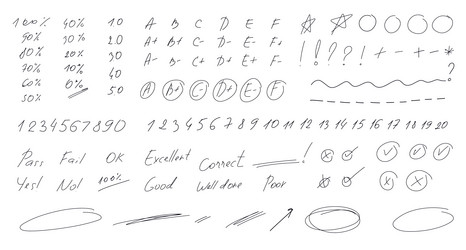 100% 40% 10 A B C D E F
90% 30% 20 A+ B+ C- D- E- F-
80% 20% 30 A- B- C+ D+ E+ F- ! ! ? ? ! + - + - *
70% 10% 40 ?
60% 0% 50 A B+ C- D+ E- F+
50%
1 2 3 4 5 6 7 8 9 0 1 2 3 4 5 6 7 8 9 10 11 12 13 14 15 16 17 18 19 20
Pass Fail OK Excellent Correct !
Yes! No! 100% Good Well done Poor